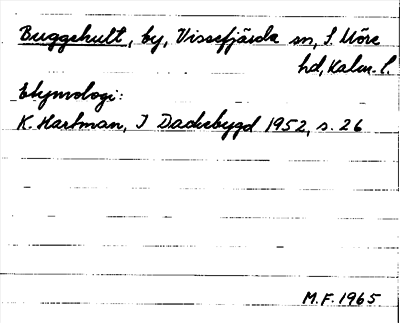 Buggehult, by, Vissefjärda sn, S. Möre
hd, Kalm. l.
Etymologi:
K. Hartman, I Dackebygd 1952, s. 26
M.F. 1965